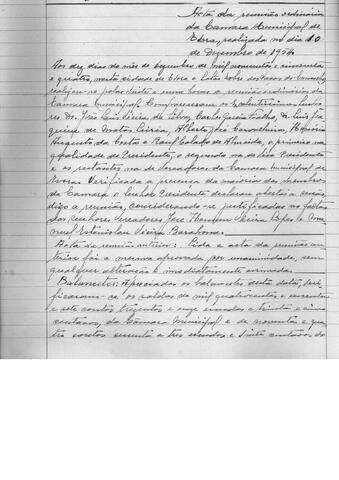 Acta da reunião ordinária
da Camara Municipal de
Evora, realizada no dia 10
de Dezembro de 1954
Aos dez dias do mês de Dezembro de mil novecentos e cincoenta
e quatro, nesta cidade de Evora e Salão nobre dos Paços do Concelho
realizou-se pelas e uma horas a reunião ordinária da
Câmara Municipal. Compareceram os Excelentíssimos Senho
res Dr. José Luis da Silva, Carlos Garcia Fialho, Dr. Luis Joa
quim de Matos, Alberto,
Augusto da Costa e Raul Calado de Almeida, o primeiro na
qualidade de Presidente, o segundo na de Vice Presidente
e os restantes na de Vereadores da Câmara Municipal de
Evora. Verificada a presença da maioria dos membros
da Camara o Senhor Presidente declarou aberta a sessão
digo a reunião, considerando-se justificadas as faltas
dos senhores Vereadores José Vieira Lopes e Ma
nuel Estanislau Vieira Barahona.
Acta da reunião anterior: Lida a acta da reunião an
terior foi a mesma aprovada, por unanimidade, sem
qualquer alteração e imediatamente assinada.
Balancete: Apreciados os balancetes desta data, veri
ficaram-se os saldos de mil quatrocentos e cincoenta
e sete contos trezentos e onze escudos e trinta e cinco
centavos, da Câmara Municipal e de noventa e qua
tro contos sessenta e tres escudos e trinta centavos, do